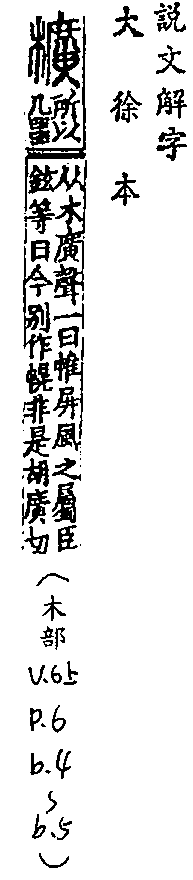 説文解字
大徐本
櫎所以
几器
从木廣聲一曰帷屏風之屬臣
鉉等曰今別作幌非是胡廣切
(木部 V.6上 P.6 b.4~b.5)